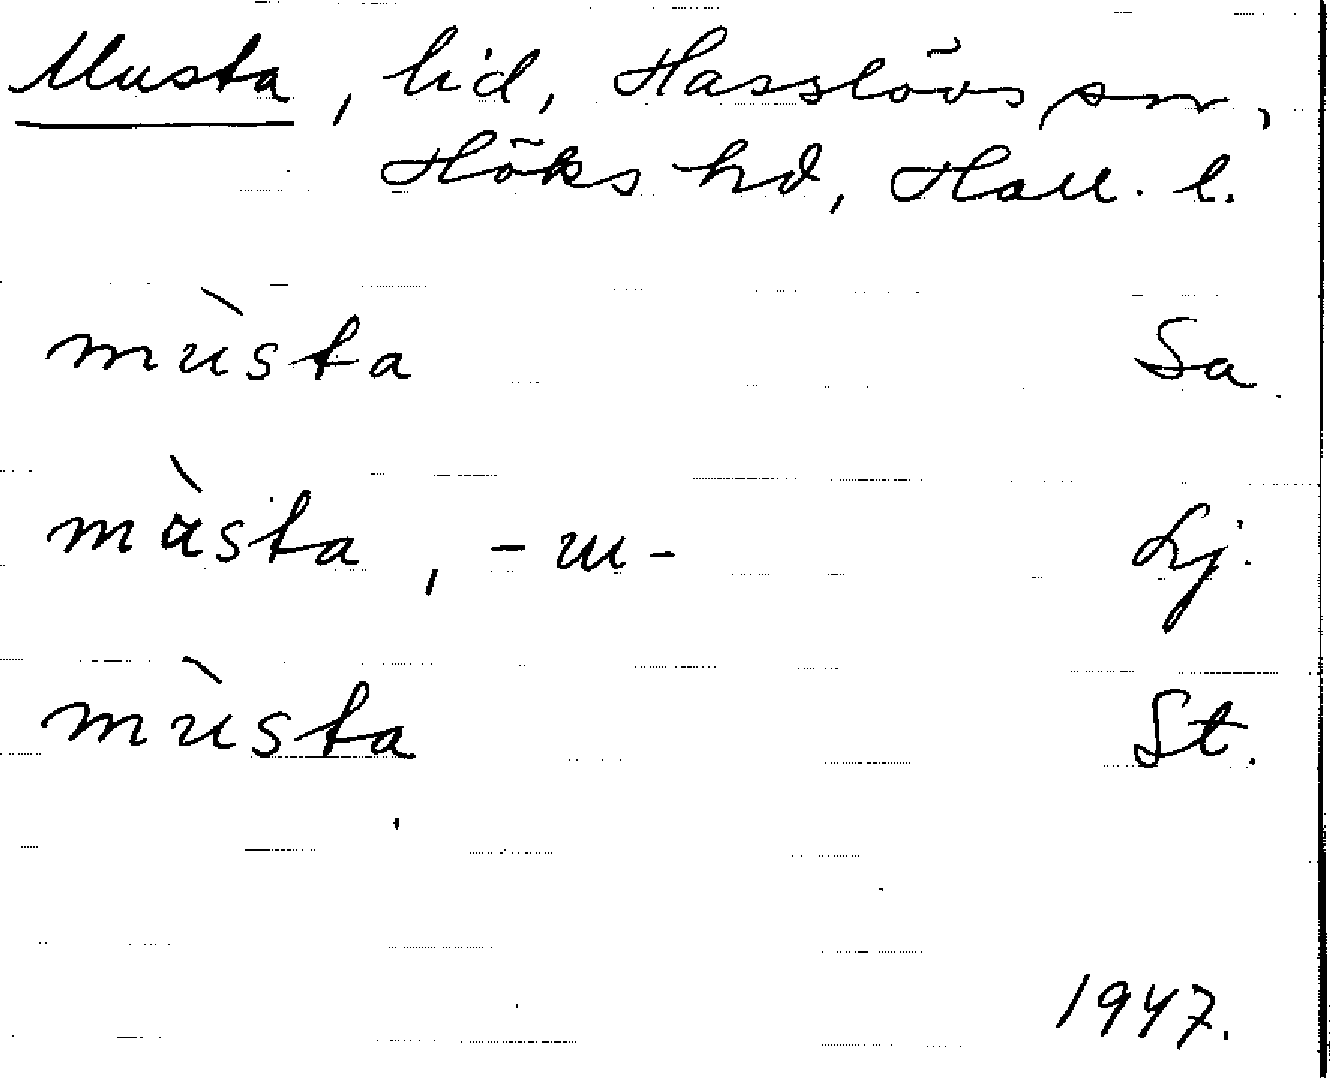 Musta, lid, Hasslövs sn,
Höks hd, Hall. l.
mùsta Sa.
màsta, -u- Lj.
mùsta St.
1947.